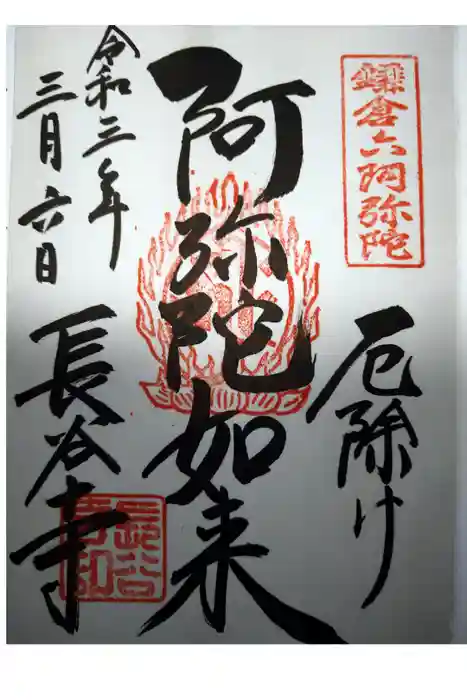 鎌倉六阿弥陀
厄除け
阿弥陀如来
令和三年
三月六日
長谷寺
長谷寺印